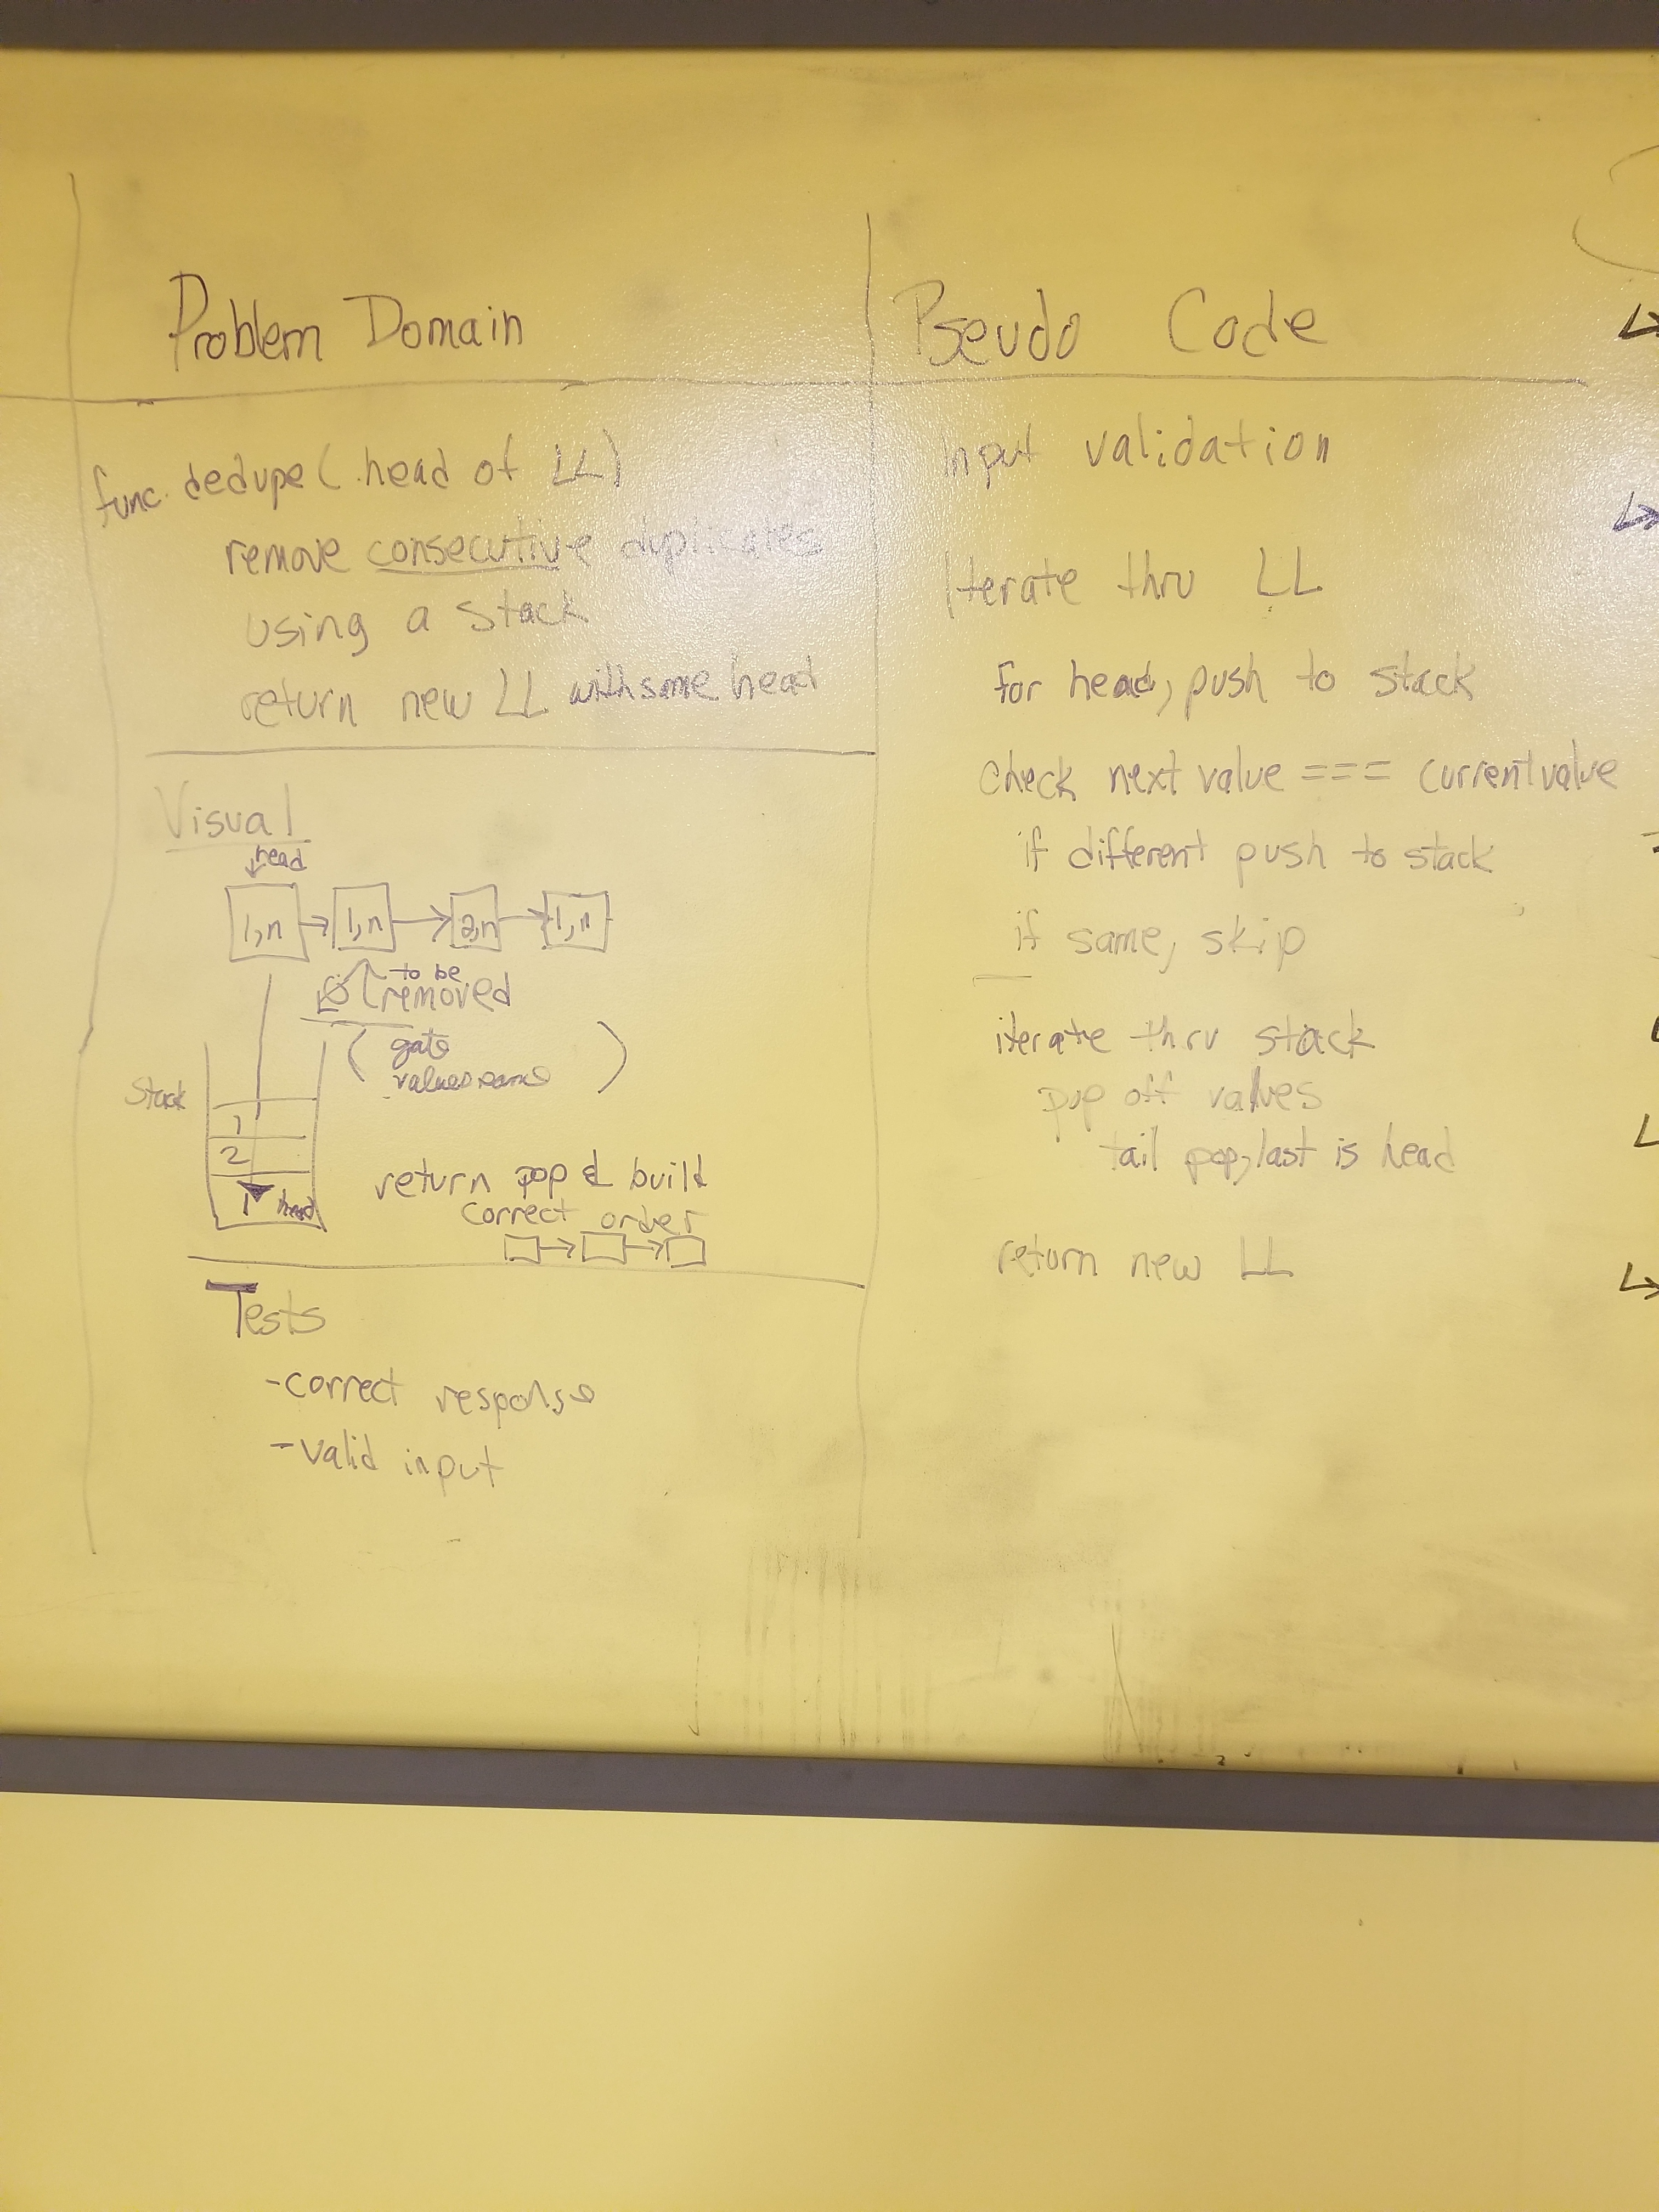 Problem Domain
func. dedupe(.head of LL)
remove consecutive duplicates
using a stack
return new LL with same head
Visual
head
1,n 1,n 2,n 1,n
to be
removed
( gate
values same )
Stack
1
2
1 head
return pop & build
correct order
Tests
-correct response
-valid input
Pseudo Code
Input validation
Iterate thru LL
for head, push to stack
check next value === current value
if different push to stack
if same, skip
iterate thru stack
pop off values
tail pop, last is head
return new LL